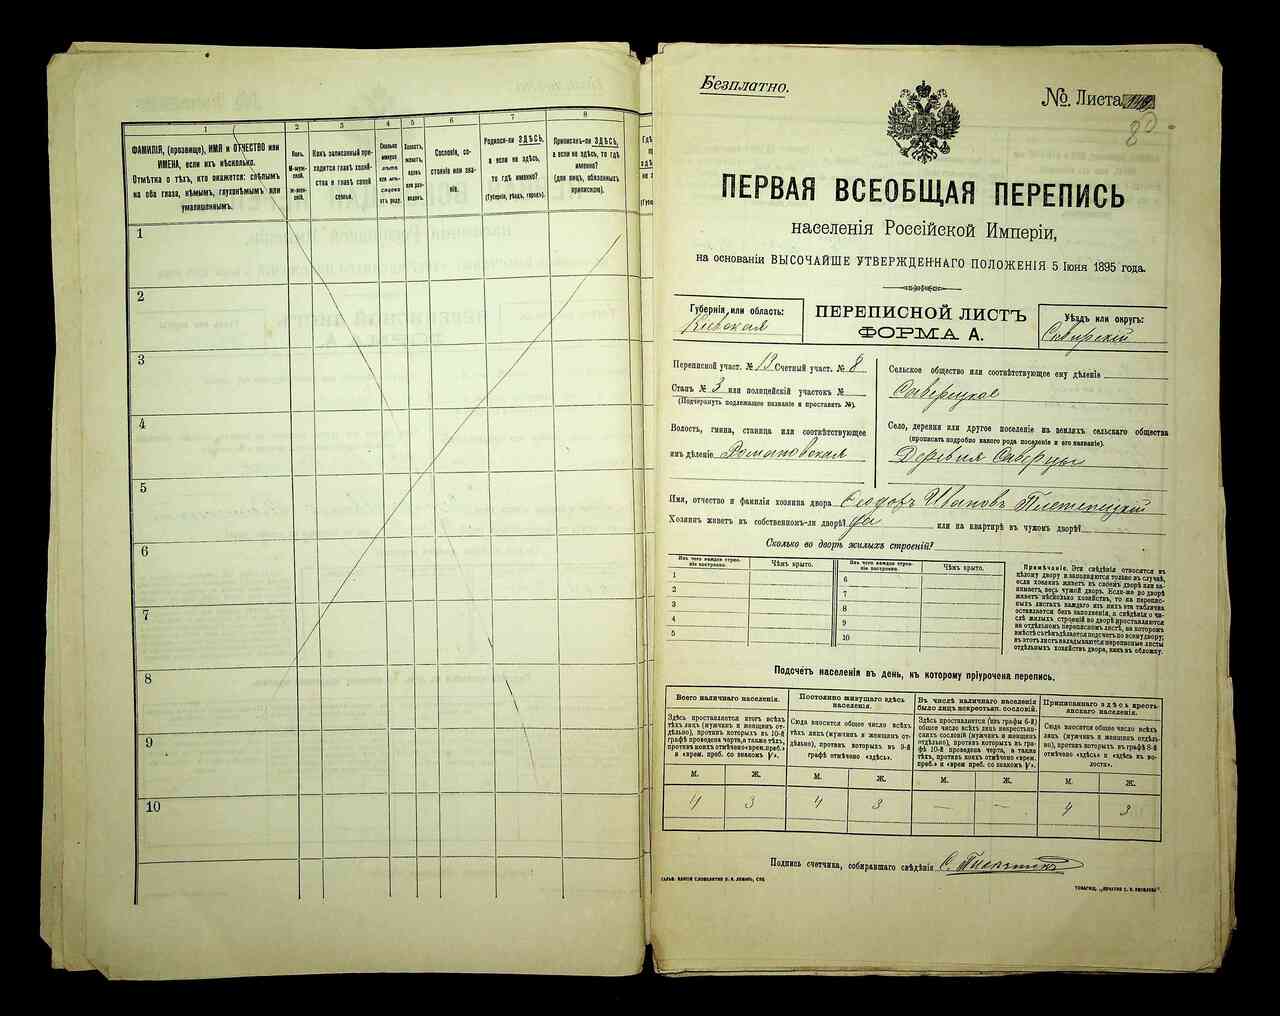 1
ФАМИЛІЯ, (прозвище), ИМЯ и ОТЧЕСТВО или
ИМЕНА, если ихъ нѣсколько.
Отмѣтка о тѣхъ, кто окажется: слѣпымъ
на оба глаза, нѣмымъ, глухонѣмымъ или
умалишеннымъ.
2
Полъ.
М-муж-
ской.
Ж-жен-
скій.
3
Какъ записанный при-
ходится главѣ хозяй-
ства и главѣ своей
семьи.
4
Сколько
минуло
лѣтъ
или мѣ-
сяцевъ
отъ роду.
5
Холостъ,
женатъ,
вдовъ
или раз-
веденъ.
6
Сословіе, со-
стояніе или зва-
ніе.
7
Родился-ли ЗДѢСЬ,
а если не здѣсь,
то гдѣ именно?
(Губернія, уѣздъ, городъ).
8
Приписанъ-ли ЗДѢСЬ,
а если не здѣсь, то гдѣ
именно?
(для лицъ, обязанныхъ
припискою).
1
2
3
4
5
6
7
8
9
10
Безплатно.
№ Листа
8
ПЕРВАЯ ВСЕОБЩАЯ ПЕРЕПИСЬ
населенія Россійской Имперіи,
на основаніи ВЫСОЧАЙШЕ УТВЕРЖДЕННАГО ПОЛОЖЕНІЯ 5 Іюня 1895 года.
Губернія или область:
Кіевская
ПЕРЕПИСНОЙ ЛИСТЪ
ФОРМА А.
Уѣздъ или округъ:
Сквирскій
Переписной участ. № 13 Счетный участ. № 8
Станъ № 3 или полицейскій участокъ №
(Подчеркнуть подлежащее названіе и проставить №).
Волость, гмина, станица или соотвѣтствующее
имъ дѣленіе Романовская
Сельское общество или соотвѣтствующее ему дѣленіе
Саверецкое
Село, деревня или другое поселеніе на земляхъ сельскаго общества
(прописать подробно какого рода поселеніе и его названіе).
Деревня Саверцы
Имя, отчество и фамилія хозяина двора Ѳеодоръ Ивановъ
Хозяинъ живетъ въ собственномъ-ли дворѣ? да или на квартирѣ въ чужомъ дворѣ?
Сколько во дворѣ жилыхъ строеній?
Изъ чего каждое строе-
ніе построено.
Чѣмъ крыто.
Изъ чего каждое строе-
ніе построено.
Чѣмъ крыто.
1
2
3
4
5
6
7
8
9
10
Примѣчаніе. Эти свѣдѣнія относятся къ
цѣлому двору и заполняются только въ случаѣ,
если хозяинъ живетъ въ своемъ дворѣ или за-
нимаетъ весь чужой дворъ. Если-же во дворѣ
живетъ нѣсколько хозяйствъ, то на перепис-
ныхъ листахъ каждаго изъ нихъ эта табличка
оставляется безъ заполненія, а свѣдѣнія о чи-
слѣ жилыхъ строеній во дворѣ проставляются
на отдѣльномъ переписномъ листѣ, на которомъ
вмѣстѣ съ тѣмъ дѣлается подсчетъ по всему двору;
въ этотъ листъ вкладываются переписные листы
отдѣльныхъ хозяйствъ двора, какъ въ обложку.
Подсчетъ населенія въ день, къ которому пріурочена перепись.
Всего наличнаго населенія.
Здѣсь проставляется итогъ всѣхъ
тѣхъ лицъ (мужчинъ и женщинъ от-
дѣльно), противъ которыхъ въ 10-й
графѣ проведена черта, а также тѣхъ,
противъ коихъ отмѣчено «врем. преб.»
и «врем. преб. со знакомъ V».
Постоянно живущаго здѣсь
населенія.
Сюда вносится общее число всѣхъ
тѣхъ лицъ (мужчинъ и женщинъ от-
дѣльно), противъ которыхъ въ 9-й
графѣ отмѣчено «здѣсь».
Въ числѣ наличнаго населенія
было лицъ некрестьян. сословій.
Здѣсь проставляется (изъ графы 6-й)
общее число всѣхъ лицъ некрестьян-
скихъ сословій (мужчинъ и женщинъ
отдѣльно), противъ которыхъ въ гра-
фѣ 10-й проведена черта, а также
тѣхъ, противъ коихъ отмѣчено «врем.
преб.» и «врем. преб. со знакомъ V».
Приписаннаго здѣсь кресть-
янскаго населенія.
Сюда вносится общее число всѣхъ
лицъ (мужчинъ и женщинъ отдѣль-
но), противъ которыхъ въ графѣ 8-й
отмѣчено «здѣсь» и «здѣсь въ во-
лости».
М. Ж. М. Ж. М. Ж. М. Ж.
4 3 4 3 — — 4 3
Подпись счетчика, собиравшаго свѣдѣнія С.